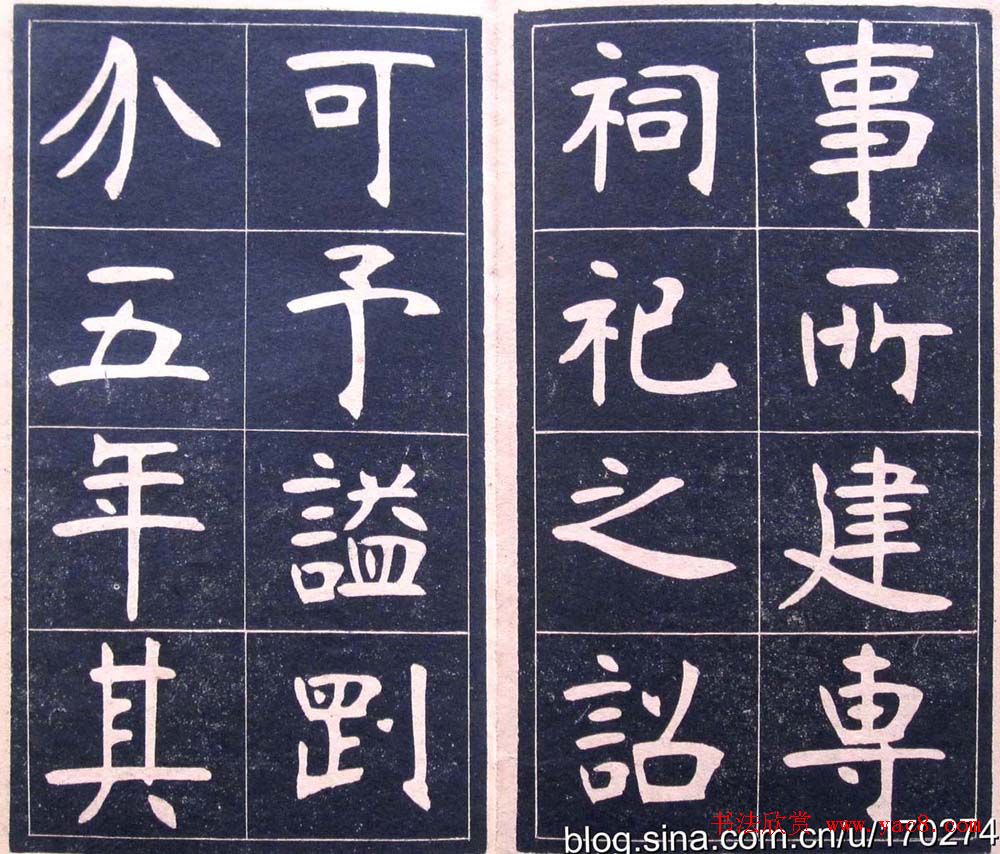 事所建専
祠祀之詔
可予謚㓻
介五年其
书法欣赏 www.yac8.com
blog.sina.com.cn/u/170274